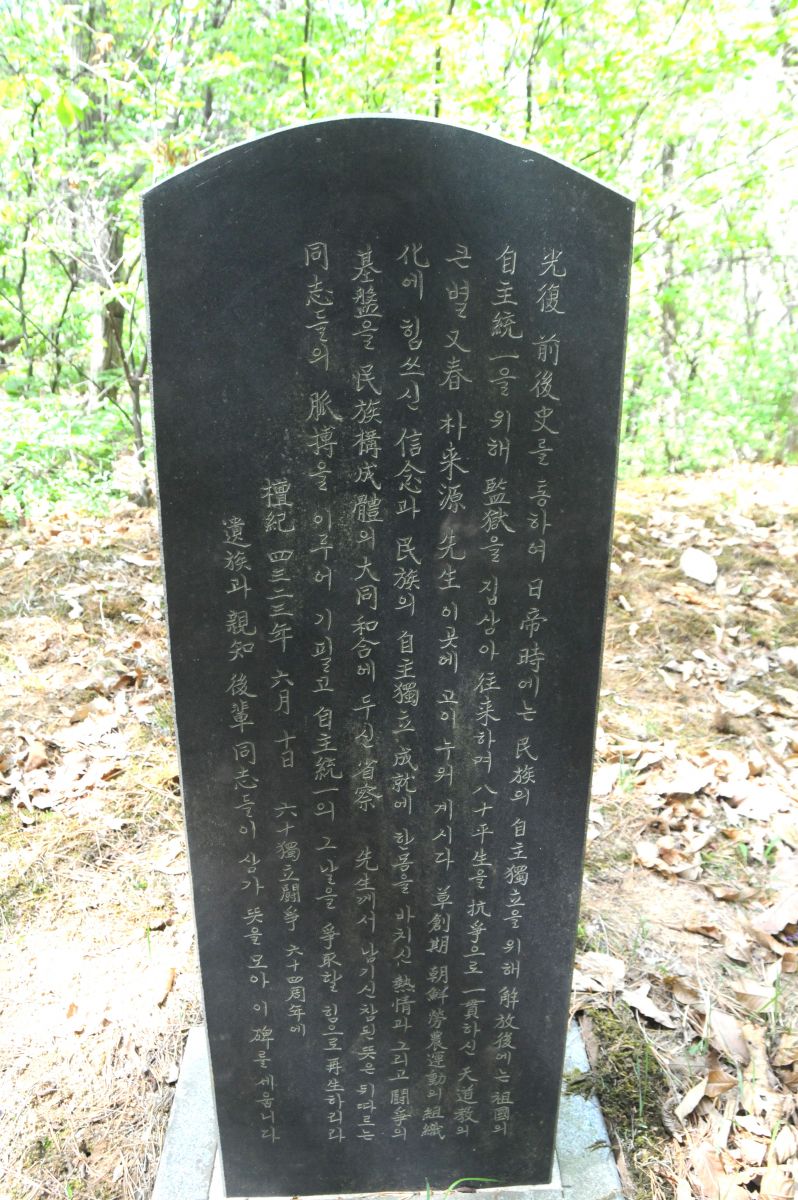 光復 前後史를 통하여 日帝時에는 民族의 自主獨立을 위해 解放後에는 祖國의
自主統一을 위해 監獄을 집삼아 往来하며 八十平生을 抗爭으로 一貫하신 天道教의
큰별 又春 朴来源 先生이곳에 고이 누워 계시다 草創期 朝鮮勞農運動의 組織
化에 힘쓰신 信念과 民族의 自主獨立成就에 한몸을 바치신 熱情과 그리고 鬪爭의
基盤을 民族構成體의 大同和合에 두신 省察 先生께서 남기신 참된 뜻은 뒤따르는
同志들의 脈搏을 이루어 기필고 自主統一의 그날을 爭取할 힘으로 再生하리라
檀紀 四三二三年 六月 十日 六十獨立鬪爭 六十四周年에
遺族과 親知 後輩 同志들이 삼가 뜻을 모아 이 碑를 세웁니다